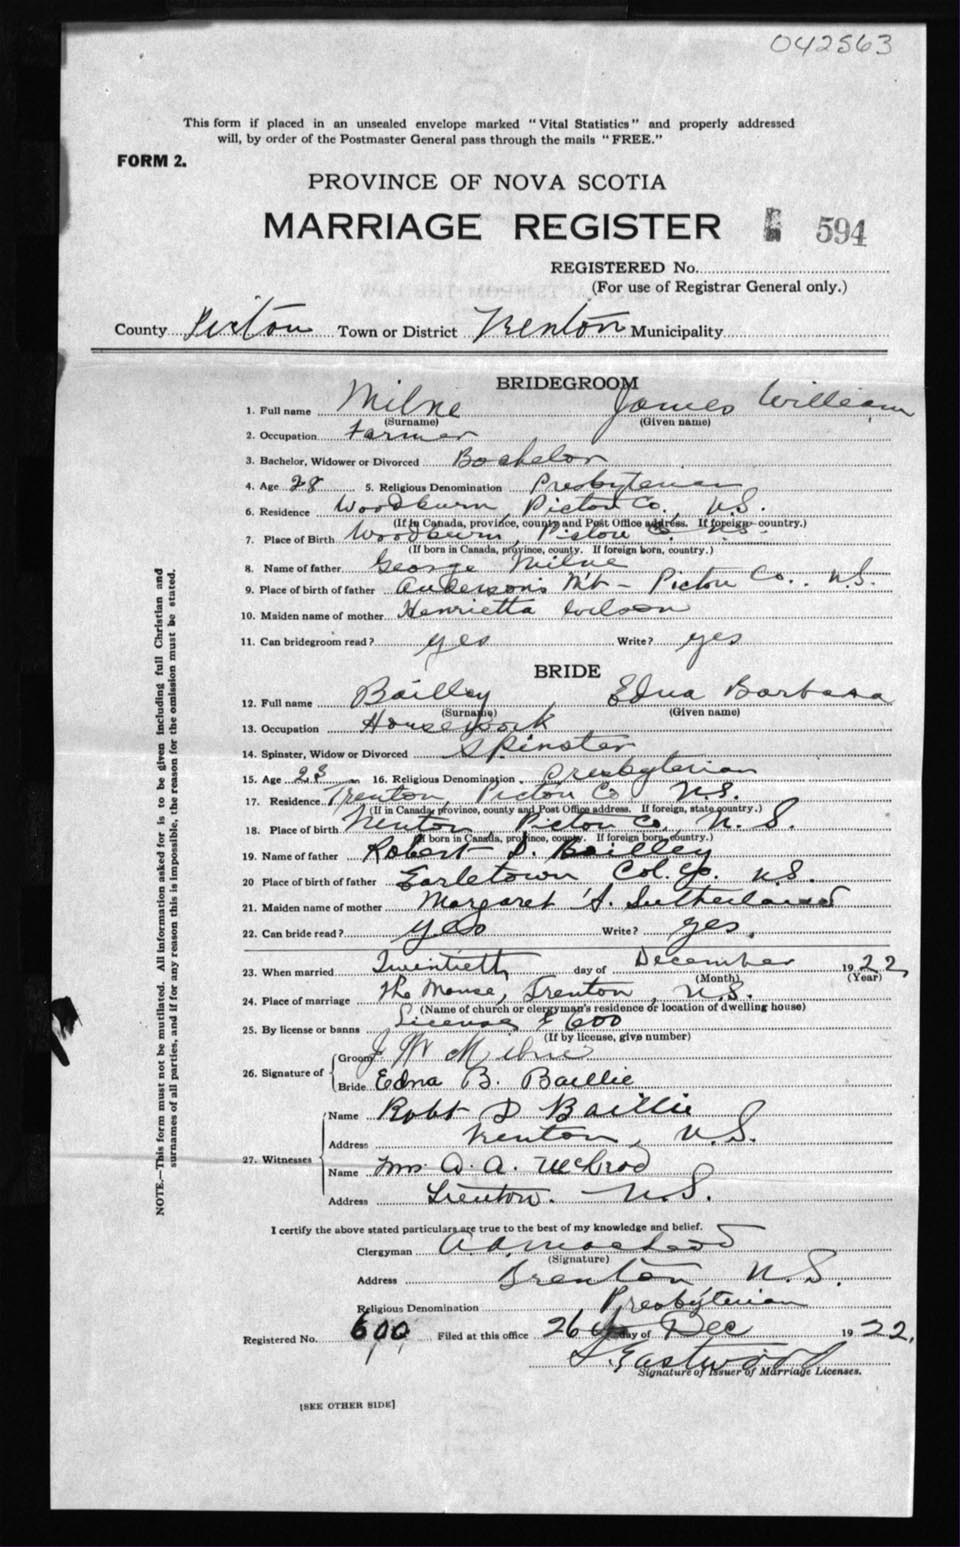 042563
This form if placed in an unsealed envelope marked "Vital Statistics" and properly addressed
will, by order of the Postmaster General pass through the mails "FREE."
FORM 2.
PROVINCE OF NOVA SCOTIA
MARRIAGE REGISTER 594
REGISTERED No.
(For use of Registrar General only.)
County Pictou Town or District Trenton Municipality
BRIDEGROOM
1. Full name Milne James William
(Surname) (Given name)
2. Occupation Farmer
3. Bachelor, Widower or Divorced Bachelor
4. Age 28 5. Religious Denomination Presbyterian
6. Residence Woodburn, Pictou Co. N.S.
(If in Canada, province, county and Post Office address. If foreign country.)
7. Place of Birth Woodburn, Pictou Co. N.S.
(If born in Canada, province, county. If foreign born, country.)
8. Name of father George Milne
9. Place of birth of father Anderson's Mt - Pictou Co. N.S.
10. Maiden name of mother Henrietta Wilson
11. Can bridegroom read? yes Write? yes
BRIDE
12. Full name Bailley Edna Barbara
(Surname) (Given name)
13. Occupation Housework
14. Spinster, Widow or Divorced Spinster
15. Age 23 16. Religious Denomination Presbyterian
17. Residence Trenton, Pictou Co N.S.
(If in Canada, province, county and Post Office address. If foreign, state country.)
18. Place of birth Trenton, Pictou Co, N.S.
(If born in Canada, province, county. If foreign born, country.)
19. Name of father Robert D. Bailley
20 Place of birth of father Earletown Col. Co. N.S.
21. Maiden name of mother Margaret A. Sutherland
22. Can bride read? yes Write? yes.
23. When married Twintieth day of December 1922
(Month) (Year)
24. Place of marriage The Manse, Trenton, N.S.
(Name of church or clergyman's residence or location of dwelling house)
25. By license or banns License 600
(If by license, give number)
26. Signature of
Groom J W Milne
Bride Edna B. Baillie
27. Witnesses
Name Robt D Baillie
Address Trenton, N.S.
Name Mrs. A. A. McLeod
Address Trenton. N.S.
I certify the above stated particulars are true to the best of my knowledge and belief.
Clergyman A. A. MacLeod
(Signature)
Address Trenton N.S.
Religious Denomination Presbyterian
Registered No. 600 Filed at this office 26 day of Dec 1922.
Eastwood
Signature of Issuer of Marriage Licenses.
[SEE OTHER SIDE]
NOTE.—This form must not be mutilated. All information asked for is to be given including full Christian and
surnames of all parties, and if for any reason this is impossible, the reason for the omission must be stated.